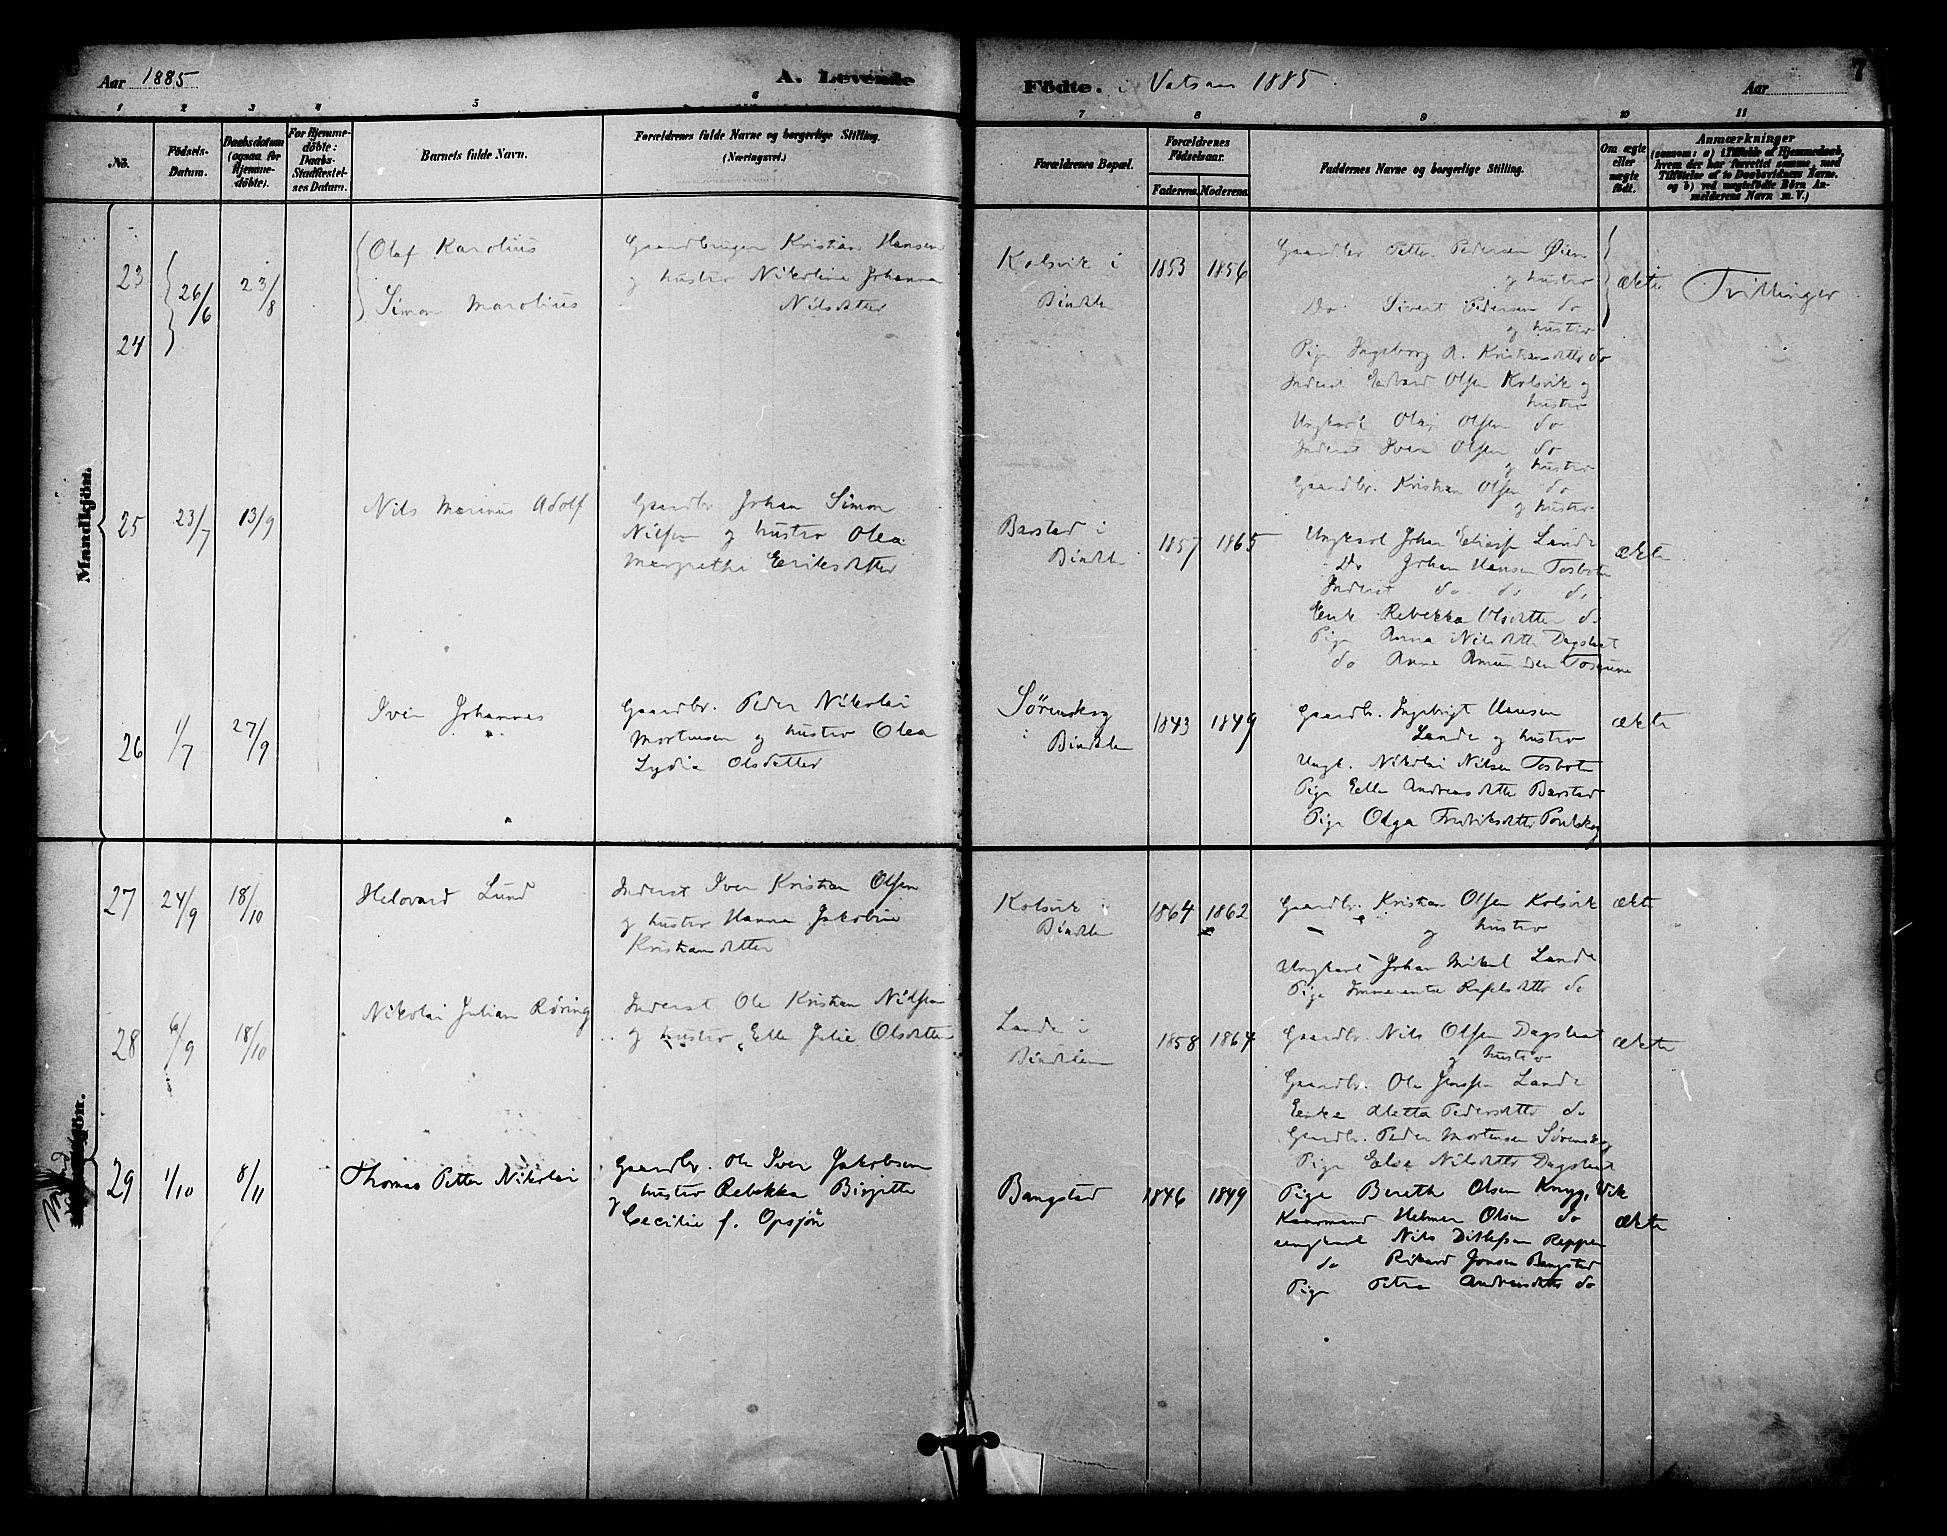 Aar 1885
A. Levende
1 2 3 4 5 6
No.
Födsels-
Datum.
Daabsdatum
(ogsaa for
Hjemme-
döbte).
For Hjemme-
döbte:
Daabs-
Stadfæstel-
ses Datum.
Barnets fulde Navn.
Forældrenes fulde Navne og borgerlige Stilling.
(Næringsvei.)
Mandkjön.
23
24
26/6
23/8
Olaf Karolius
Simon Marolius
Gaardbruger Kristian Hansen
og hustru Nikolina Johanna
Nilsdatter
25
23/7
13/9
Nils Marinus Adolf
Gaardbr Johan Simon
Nilsen og hustru Olea
Margrethe Eriksdatter
26
1/7
27/9
Iver Johannes
Gaardbr. Peder Nikolai
Mortensen og hustru Olea
Lydia Olsdatter
27
24/9
18/10
Helovard Lund
Inderst Iver Kristian Olsen
og hustru Hanna Jakobine
Kristiansdatter
28
6/9
18/10
Nikolai Julian Röring
Inderst Ole Kristian Nilsen
og hustru Elle Julie Olsdatter
kjön.
29
1/10
8/11
Thomas Petter Nikolai
Gaardbr. Ole Iver Jakobsen
og hustru Rebekka Birgitte
Cecilie f. Opsjön
Födte. i Vatsaas 1885.
Aar
7
7 8 9 10 11
Forældrenes Bopæl.
Forældrenes
Födselsaar.
Faderens. Moderens.
Faddernes Navne og borgerlige Stilling.
Om ægte
eller
uægte
födt.
Anmærkninger
(saasom: a) i Tilfælde af Hjemmedaab,
hvem der har forrettet samme, med
Tilföielse af to Daabsvidners Navne.
og b) ved uægtefödte Börn An-
melderens Navn m. V.)
Kolsvik i
Bindalen
1853 1856
Gaardbr Petter Pedersen Øien
og hustru
Do. Sivert Pedersen do
og hustru
Pige Ingeborg A. Kristiansdatter do
Inderst Edvard Olsen Kolsvik og
hustru
Ungkarl Olaf Olsen do
Inderst Iver Olsen do
og hustru
Gaardbr. Kristian Olsen do
og hustru
ækte
Tvillinger
Barstad i
Bindalen
1857 1865
Ungkarl Johan Eliass Lande
Do Johan Hansen Tosboten
Inderst do do do
Enke Rebekka Olsdatter do
Pige Anna Nilsdatter Dagslaat
do Anne
ækte
Sørenskog
i Bindalen
1843 1849
Gaardbr. Ingebrigt Hansen
Lande og hustru
Ungk. Nikolai Nilsen Tosboten
Pige Elle Andreasdatter Barstad
Pige Olga Fredriksdatter
ækte
Kolsvik i
Bindalen
1864 1862
Gaardbr. Kristian Olsen Kolsvik
og hustru
Ungkarl Johan Mikal Lande
Pige
ækte
Lande i
Bindalen
1858 1864
Gaardbr. Nils Olsen Dagslaat
og hustru
Gaardbr. Ole Jenssen Lande
Enke Aletta Pedersdatter do
Gaardbr. Peder Mortensen Sørenskog
Pige Else Nilsdatter Dagslaat
ækte
Bangstad
1846 1849
Pige Bereth Olsen
Helmer Olsen do
Ungkarl Nils Ditlefsen Reppen
do Rikard Jonsen Bangstad
Pige Petra Andreasdatter do
ækte